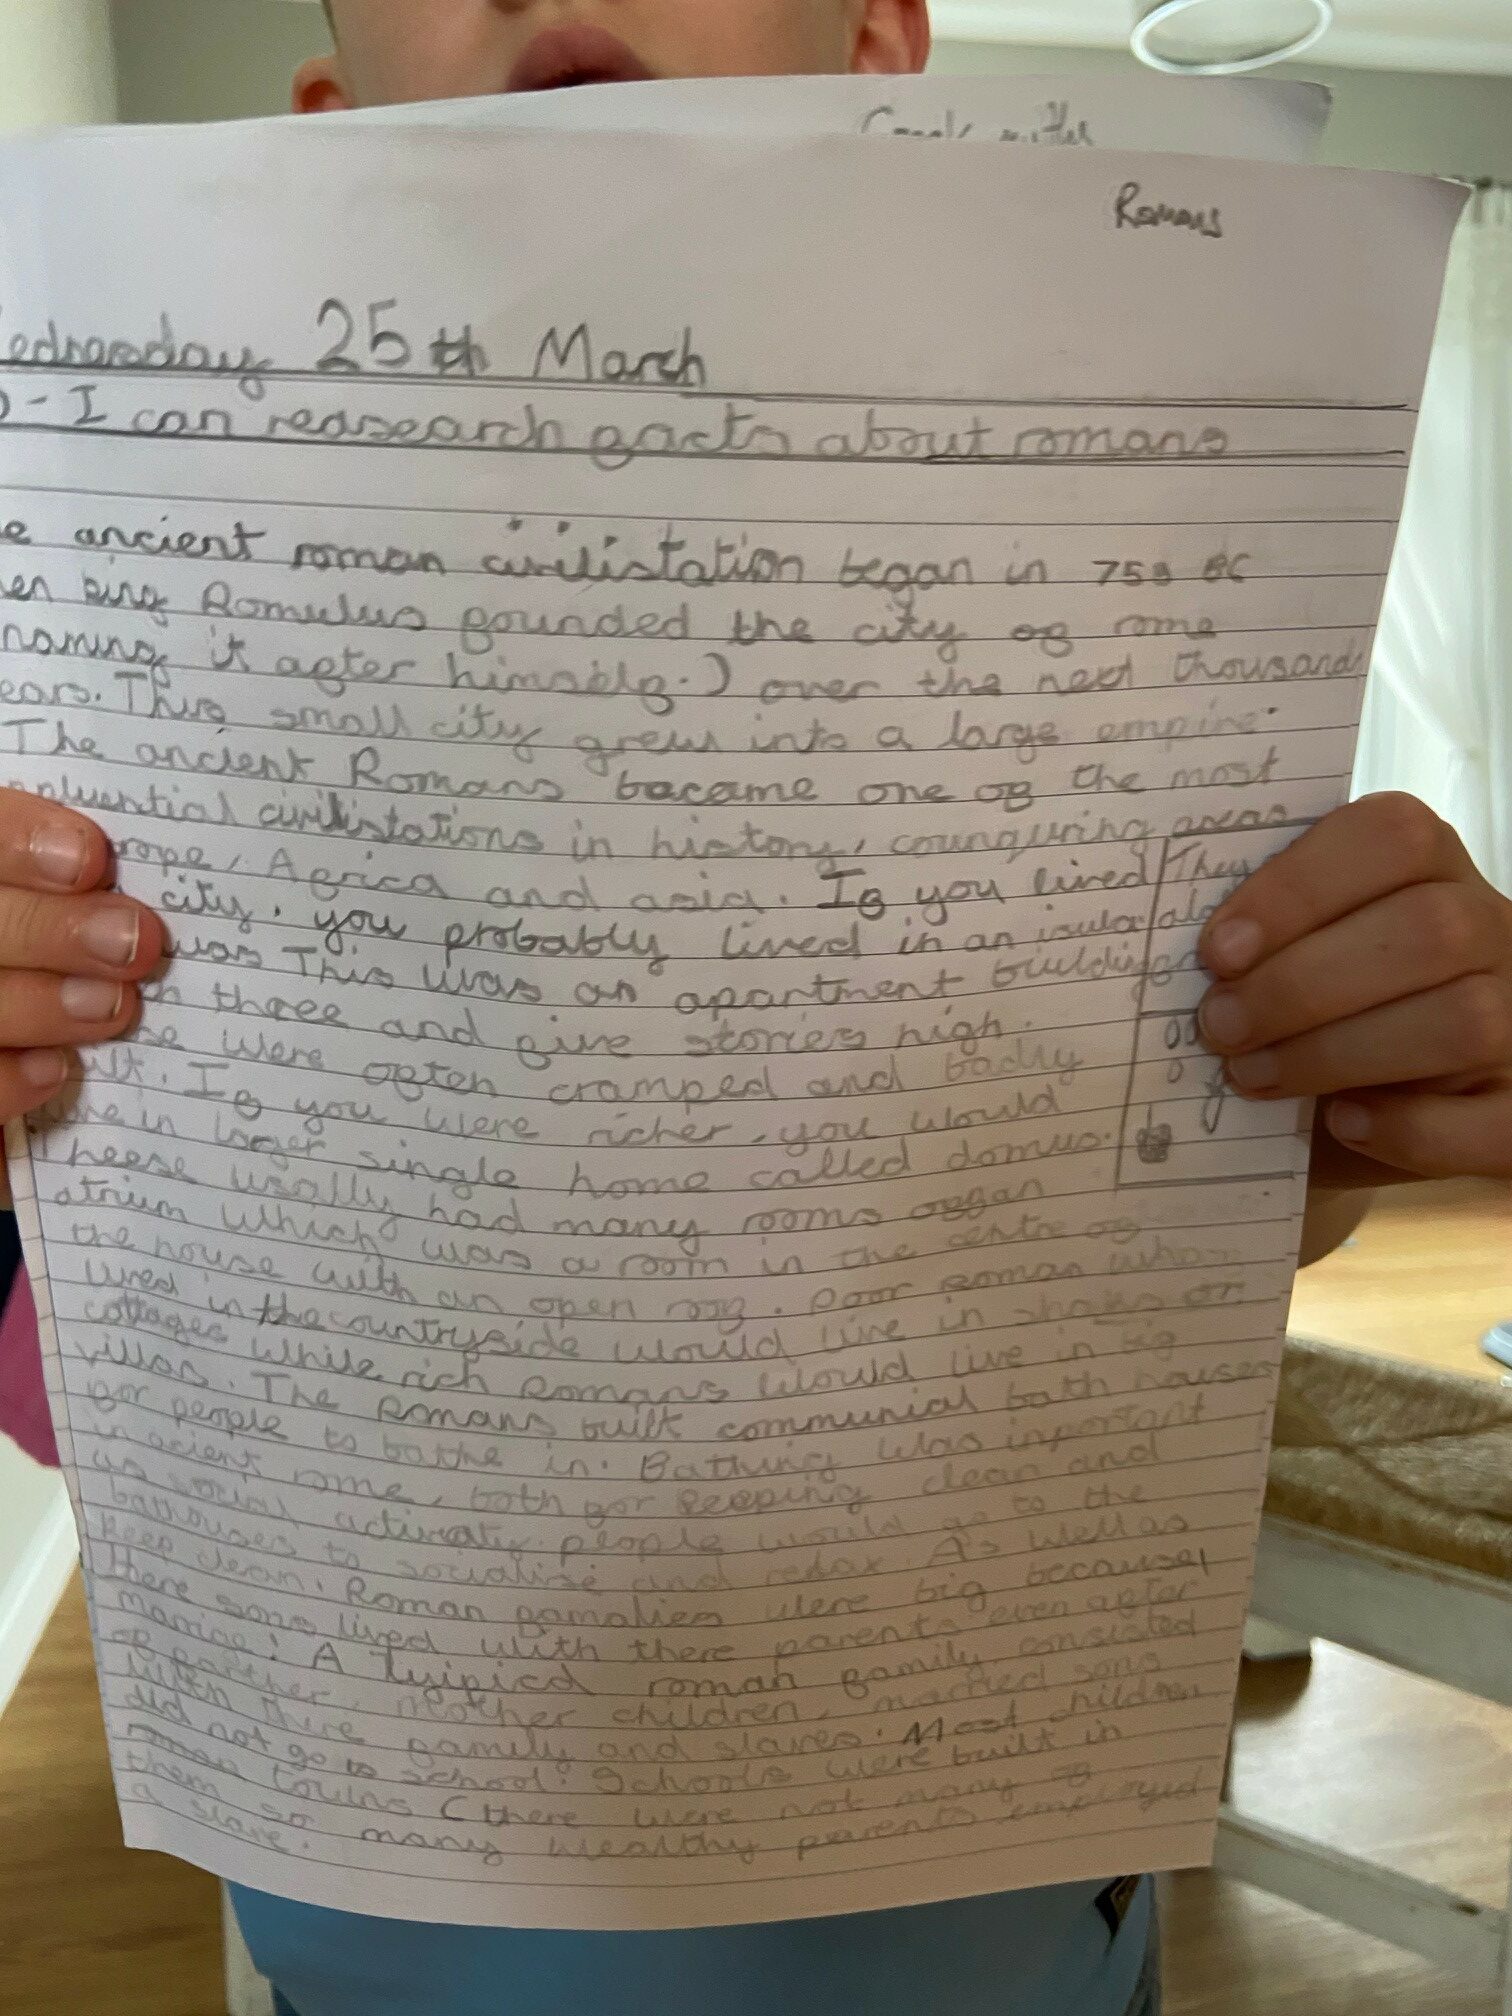 Romans
ednesday 25th March
- I can reasearch facts about romans
e ancient roman civilistation began in 753 BC
en king Romulus founded the city of rome
naming it after himself.) over the next thousand
ears. This small city grew into a large empire.
The ancient Romans became one of the most
nfluential civilistations in history, counquring areas
rope, Africa and asia. If you lived
city, you probably lived in an insula
was This was an apartment building
three and five stories high.
se were often cramped and badly
ult. If you were richer, you would
live in larger single home called domus.
Theese usally had many rooms
atrium which was a room in the centre of
the house with an open roof. Poor roman whom
lived in the countryside would live in shaks or
cottages while rich Romans would live in big
villas. The Romans built communial bath houses
for people to bathe in. Bathing was inportant
in acient rome, both for keeping clean and
as social people would go to the
bathouses to socialise and relax. As well as
keep clean. Roman famalies were big because
there sons lived with there parents even after
marrige! A roman family consisted
of farther, mother children, married sons
with there family and slaves. Most children
did not go to school. Schools were built in
towns (there were not many of
them so many wealthy parents employed
a slave.
They